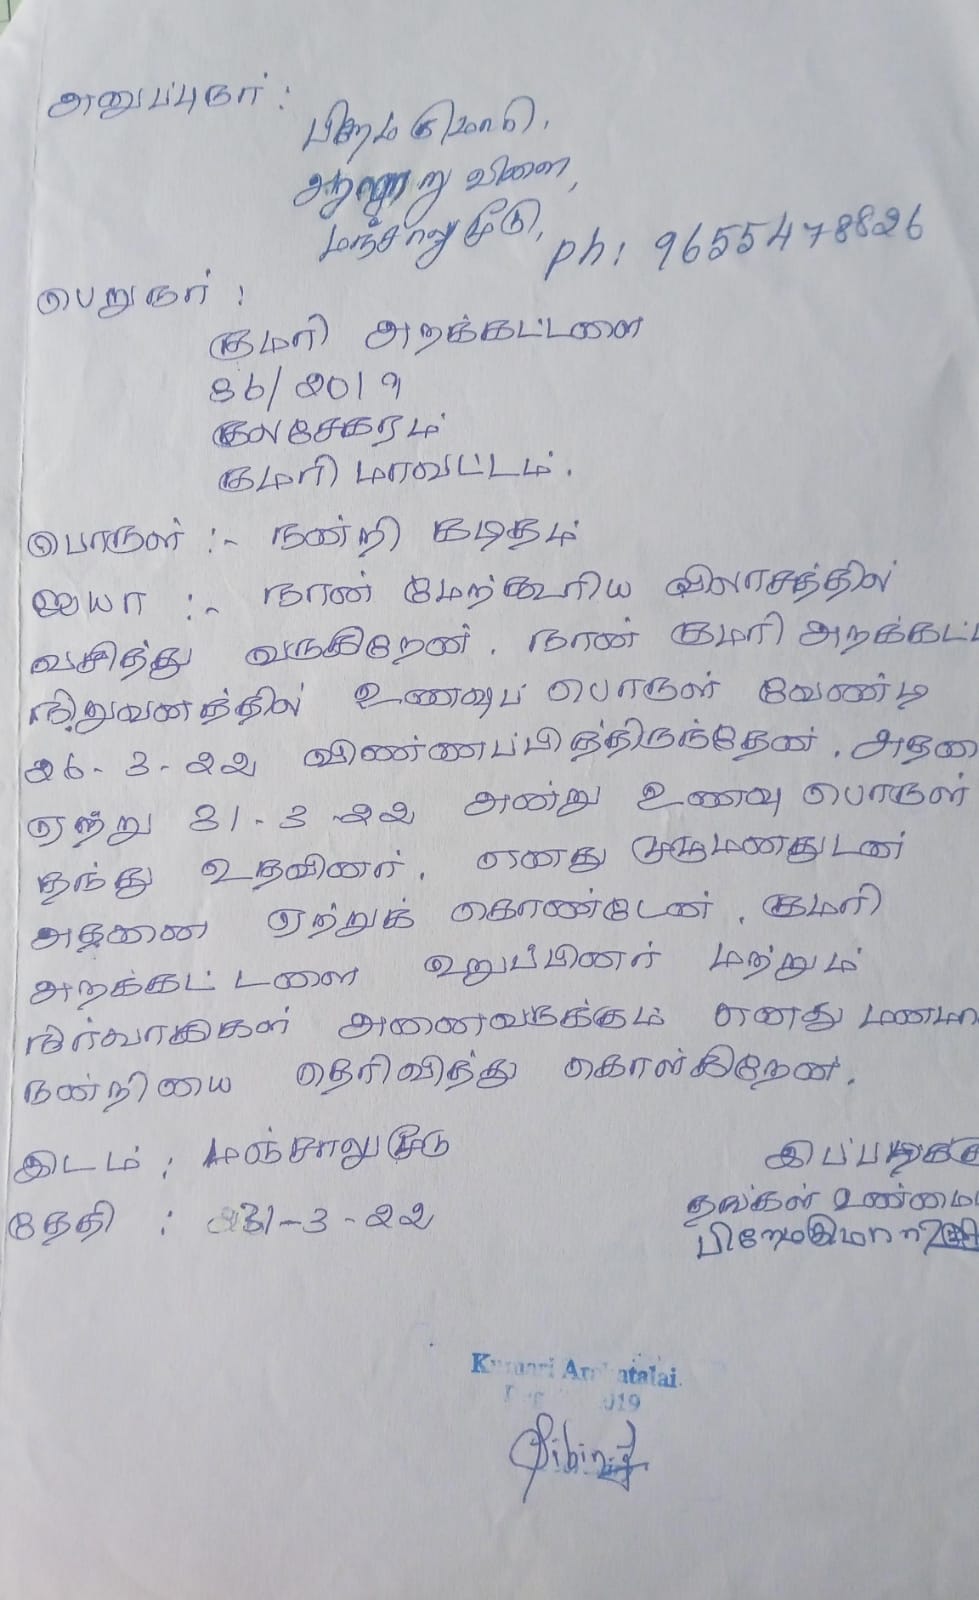 அனுப்புநர் :
பிரேம குமாரி,
ஆறு விளை,
மஞ்சாலுமூடு, ph: 9655478826
பெறுநர் :
குமரி அறக்கட்டளை
86/2019
குலசேகரம்
குமரி மாவட்டம்.
பொருள் :- நன்றி கடிதம்
ஐயா :- நான் மேற்கூரிய விலாசத்தில்
வசித்து வருகிறேன். நான் குமரி அறக்கட்ட
நிறுவனத்தில் உணவுப் பொருள் வேண்டி
26-3-22 விண்ணப்பித்திருந்தேன். அதனை
ஏற்று 31-3-22 அன்று உணவு பொருள்
தந்து உதவினர். எனது முழுமனதுடன்
அதனை ஏற்றுக் கொண்டேன். குமரி
அறக்கட்டளை உறுப்பினர் மற்றும்
நிர்வாகிகள் அனைவருக்கும் எனது மனமா
நன்றியை தெரிவித்து கொள்கிறேன்.
இடம் : மஞ்சாலுமூடு இப்படிக்கு
தேதி : 31-3-22 தங்கள் உண்மை
Kumari Arakatalai.
2019
Sibin